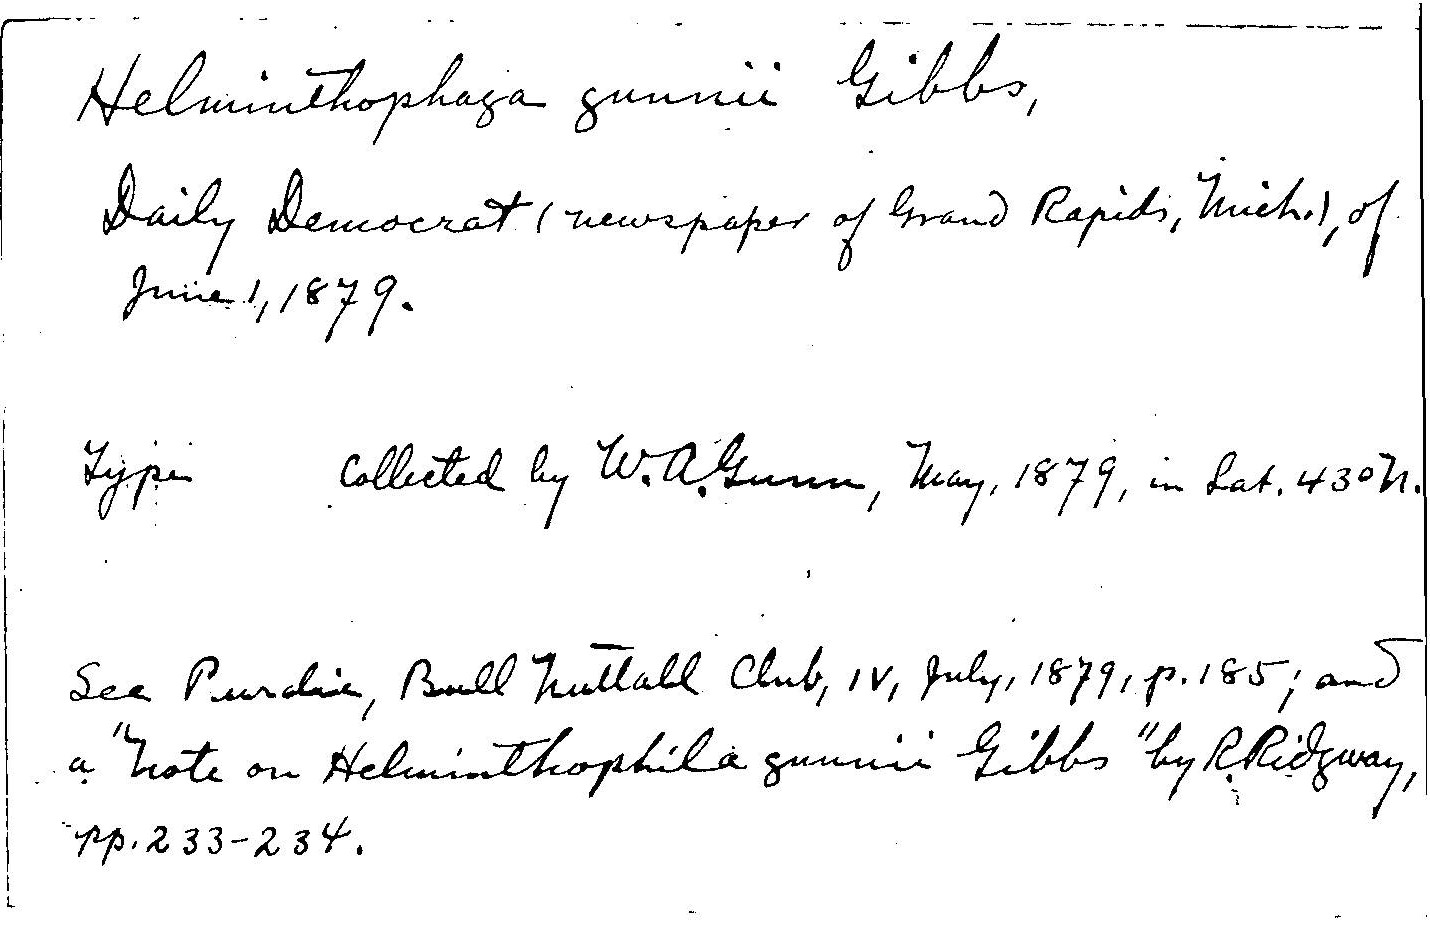 Helminthophaga gunnii Gibbs,
Daily Democrat (newspaper of Grand Rapids, Mich.), of
June 1, 1879.
Type collected by W. A. Gunn, May, 1879, in Lat. 43° N.
See Purdie, Bull Nuttall Club, IV, July, 1879, p. 185; and
a "Note on Helminthophila gunnii Gibbs" by R. Ridgway,
pp. 233-234.